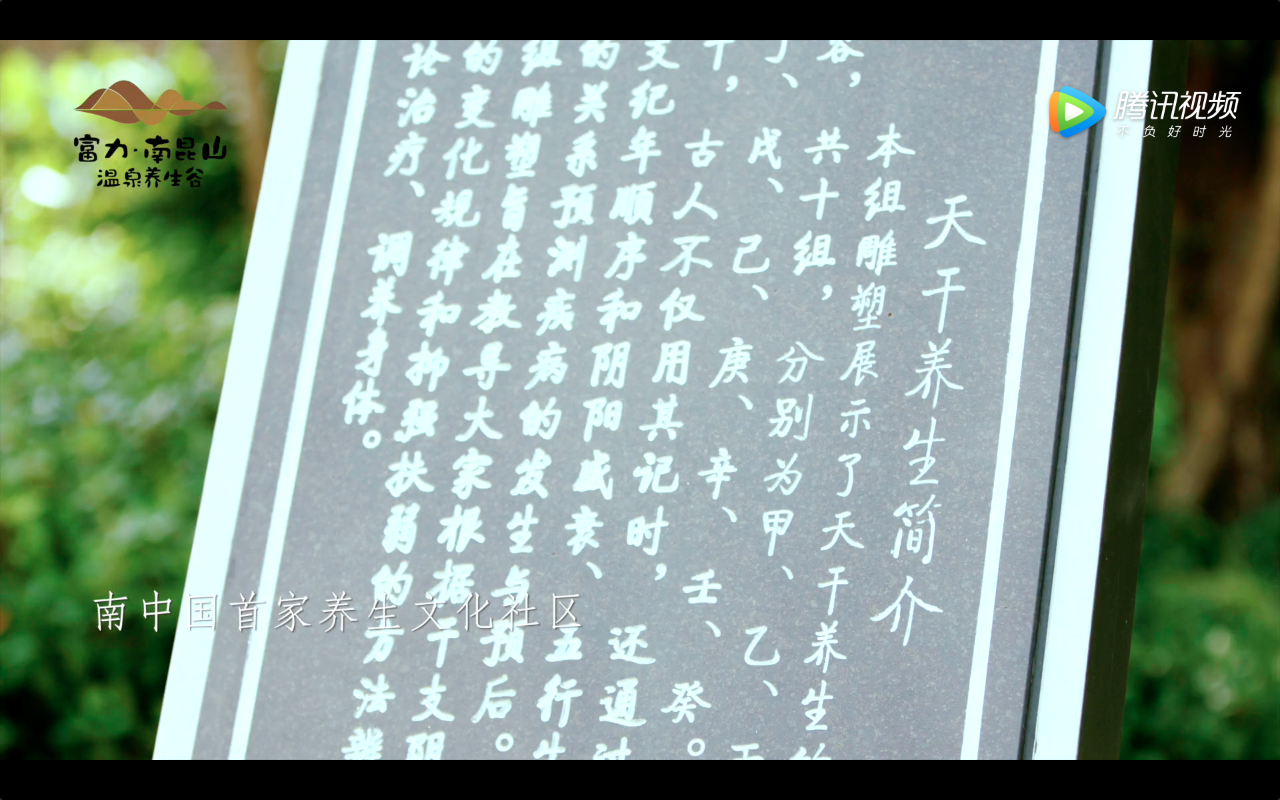 富力·南昆山
温泉养生谷
腾讯视频
不负好时光
天干养生简介
本组雕塑展示了天干养生的
谷，共十组，分别为甲、乙、丙
丁、戊、己、庚、辛、壬、癸。
干，古人不仅用其记时，还通过
支纪年顺序和阴阳盛衰、五行生
的关系预测疾病的发生与预后。
组雕塑旨在教导大家根据干支阴
的变化规律和抑强扶弱的方法辨
论治疗、调养身体。
南中国首家养生文化社区